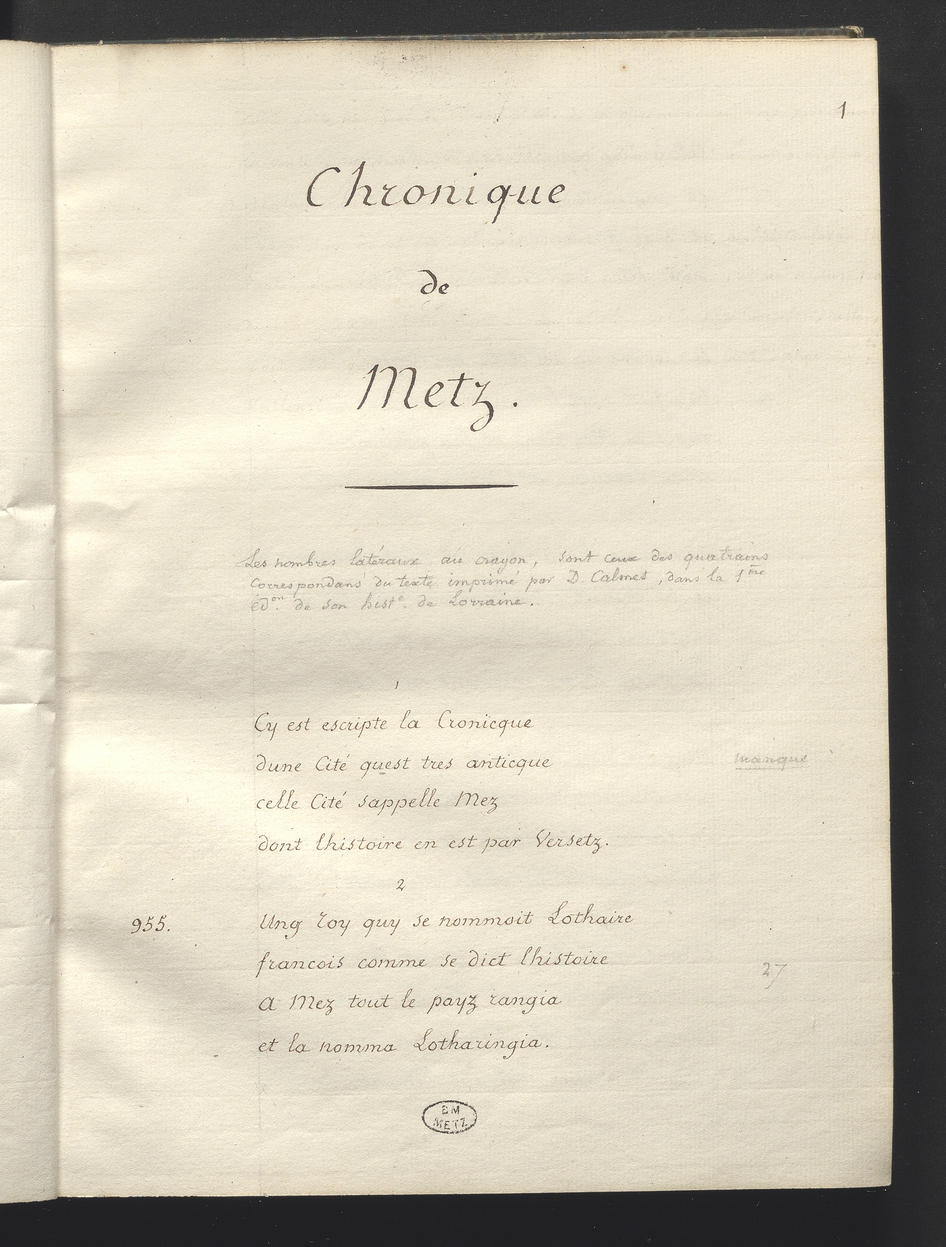 1
Chronique
de
Metz.
Les nombres latéraux au crayon, sont ceux des quatrains
correspondans du texte imprimé par D. Calmet, dans la 1ère
édon. de son histe. de Lorraine.
1
Cy est escripte la Cronicque
dune Cité quest tres anticque
manque
celle Cité sappelle Mez
dont lhistoire en est par Versetz.
2
955. Ung roy quy se nommoit Lothaire
francois comme se dict lhistoire
27
A Mez tout le payz rangia
et la nomma Lotharingia.
BM
METZ